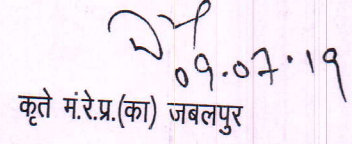 09.07.19
कृते मं.रे.प्र.(का) जबलपुर